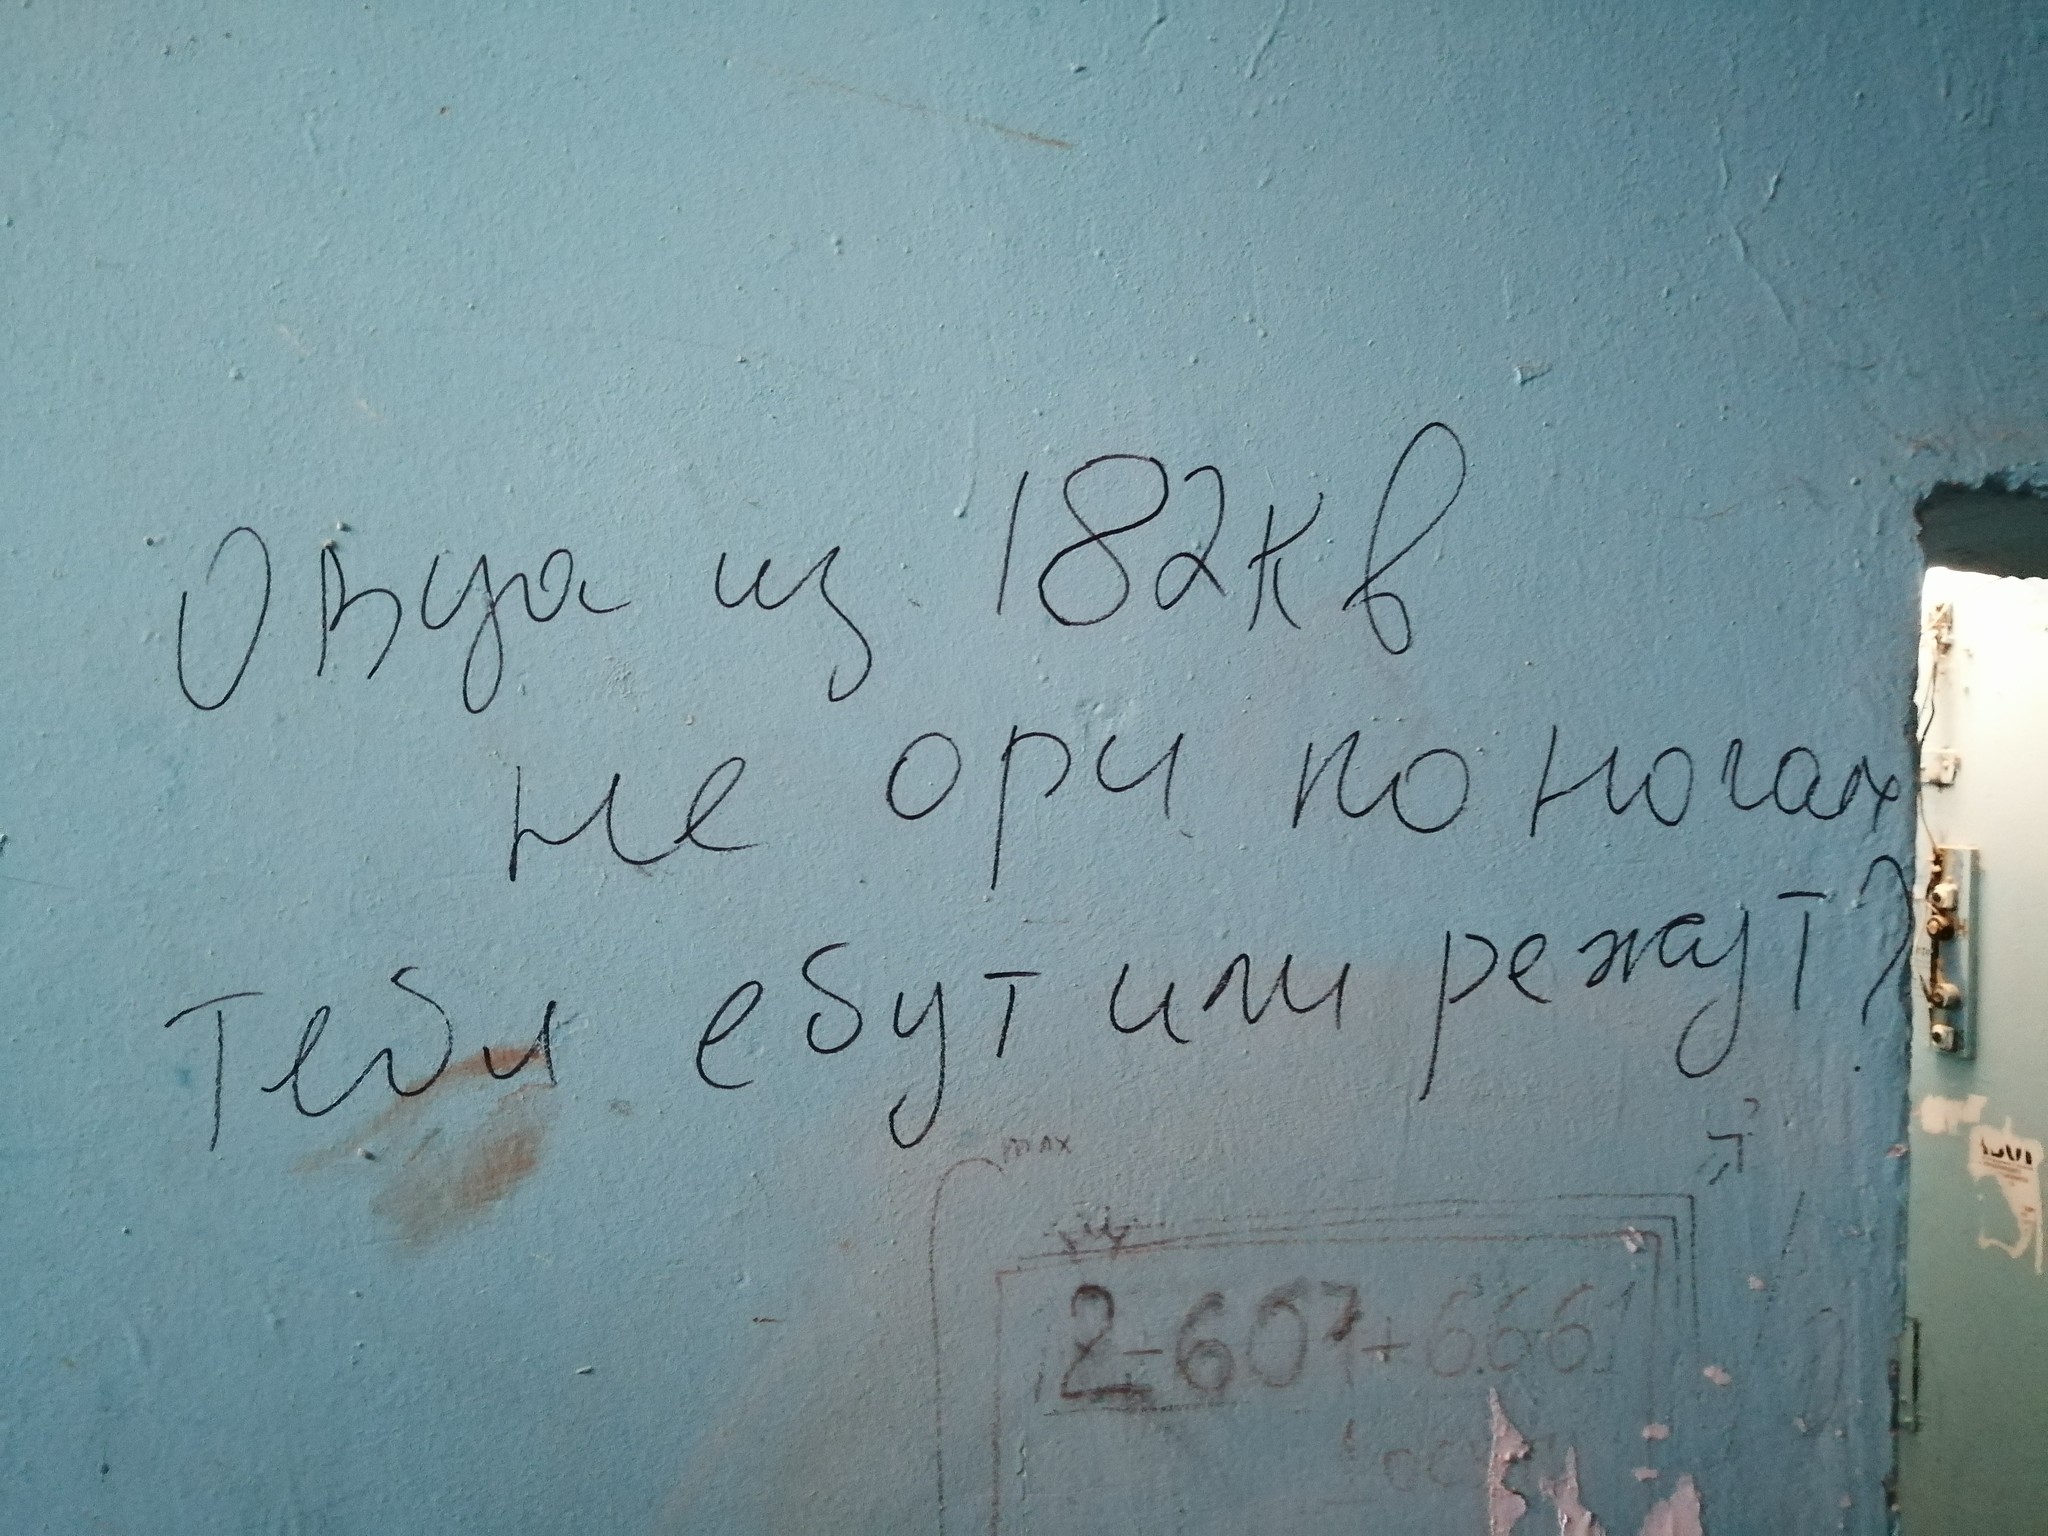 Овца из 182кв
не ори по ногах
Теби ебут или режут?
max
2-607+6661